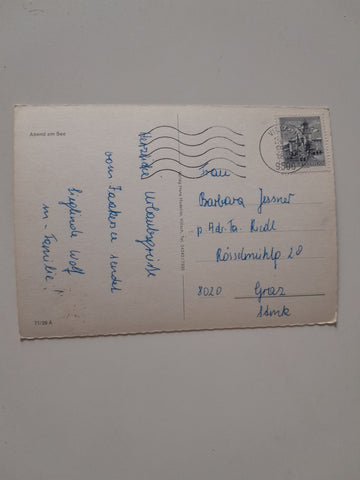 Abend am See
Herzliche Urlaubsgrüsse
vom Faakersee sendet
Sieglinde Wolf
m - Familie!
71/26 A
9500
Frau
Barbara Jessner
p. Adr. Fa. Riedl
Rösselmühlg 28
8020 Graz
Stmk